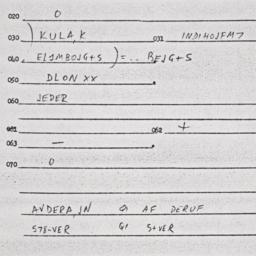 020 0
030 ) KULA,K 031 INDIHOJFM7
040 ELJMBOJG+S ) = .. BEJG+S
050 DLON XX
060 JEDER
061 062 +
063 —
070 0
AVDERA,IN G AF DERUF
578-VER G1 S+VER